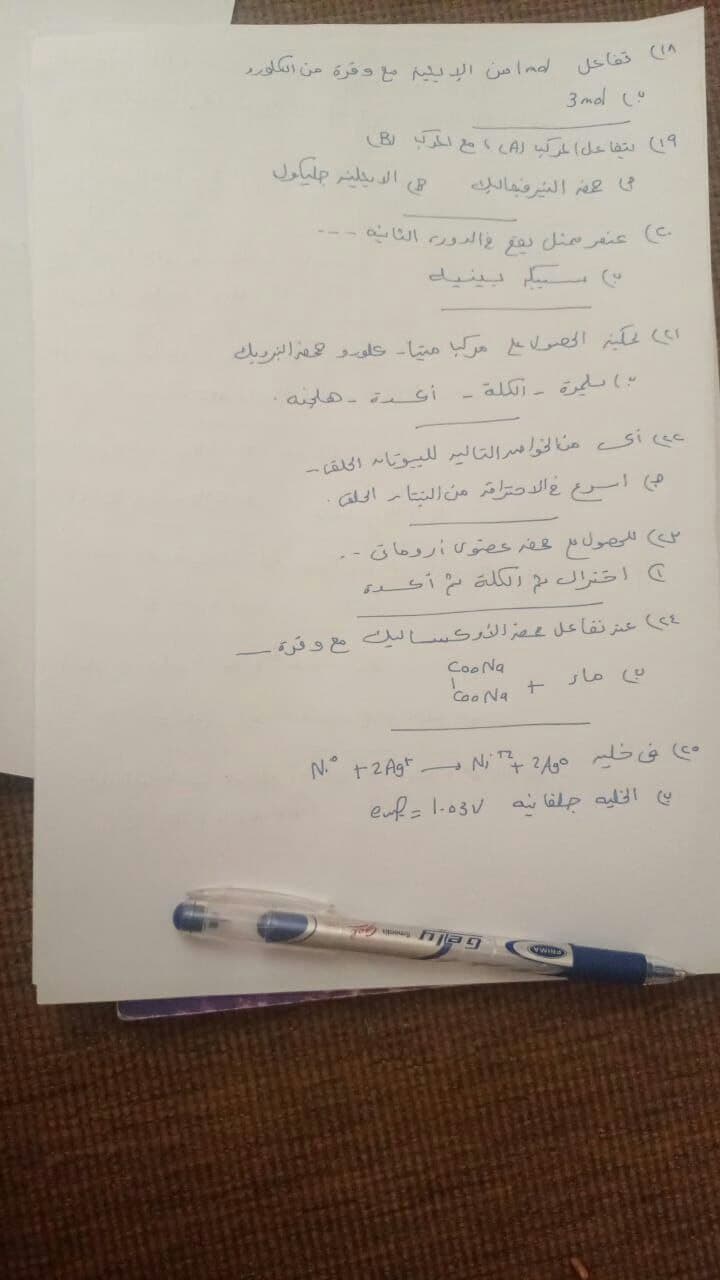 ١٨) تفاعل 1mol من الإيثين مع وفرة من الكلور
ب) 3mol
١٩) يتفاعل المركب (A) مع المركب (B)
حمض التيرفيثاليك B) الايثيلين جليكول
٢٠) عنصر ممثل يقع في الدورة الثانية ---
ب) سبيكة بينية
٢١) يمكن الحصول على مركب ميتا - كلورو حمض البنزويك
ب) بلمرة - الكلة - أكسدة - هلجنه .
٢٢) أى من الخواص التالية للبيوتان الحلقى -
ج) أسرع في الاحتراق من البنتان الحلقى .
٢٣) للحصول على حمض عضوى أروماتى --
أ) اختزال ثم الكلة ثم أكسدة
٢٤) عند تفاعل حمض الأوكساليك مع وفرة -
ب) ماء + COONa
COONa
٢٥) فى خليه Ni⁰ + 2Ag⁺ → Ni⁺² + 2Ag⁰
ب) الخليه جلفانيه emf = 1.03V
PRIMA
Gelu
Smooth Gel